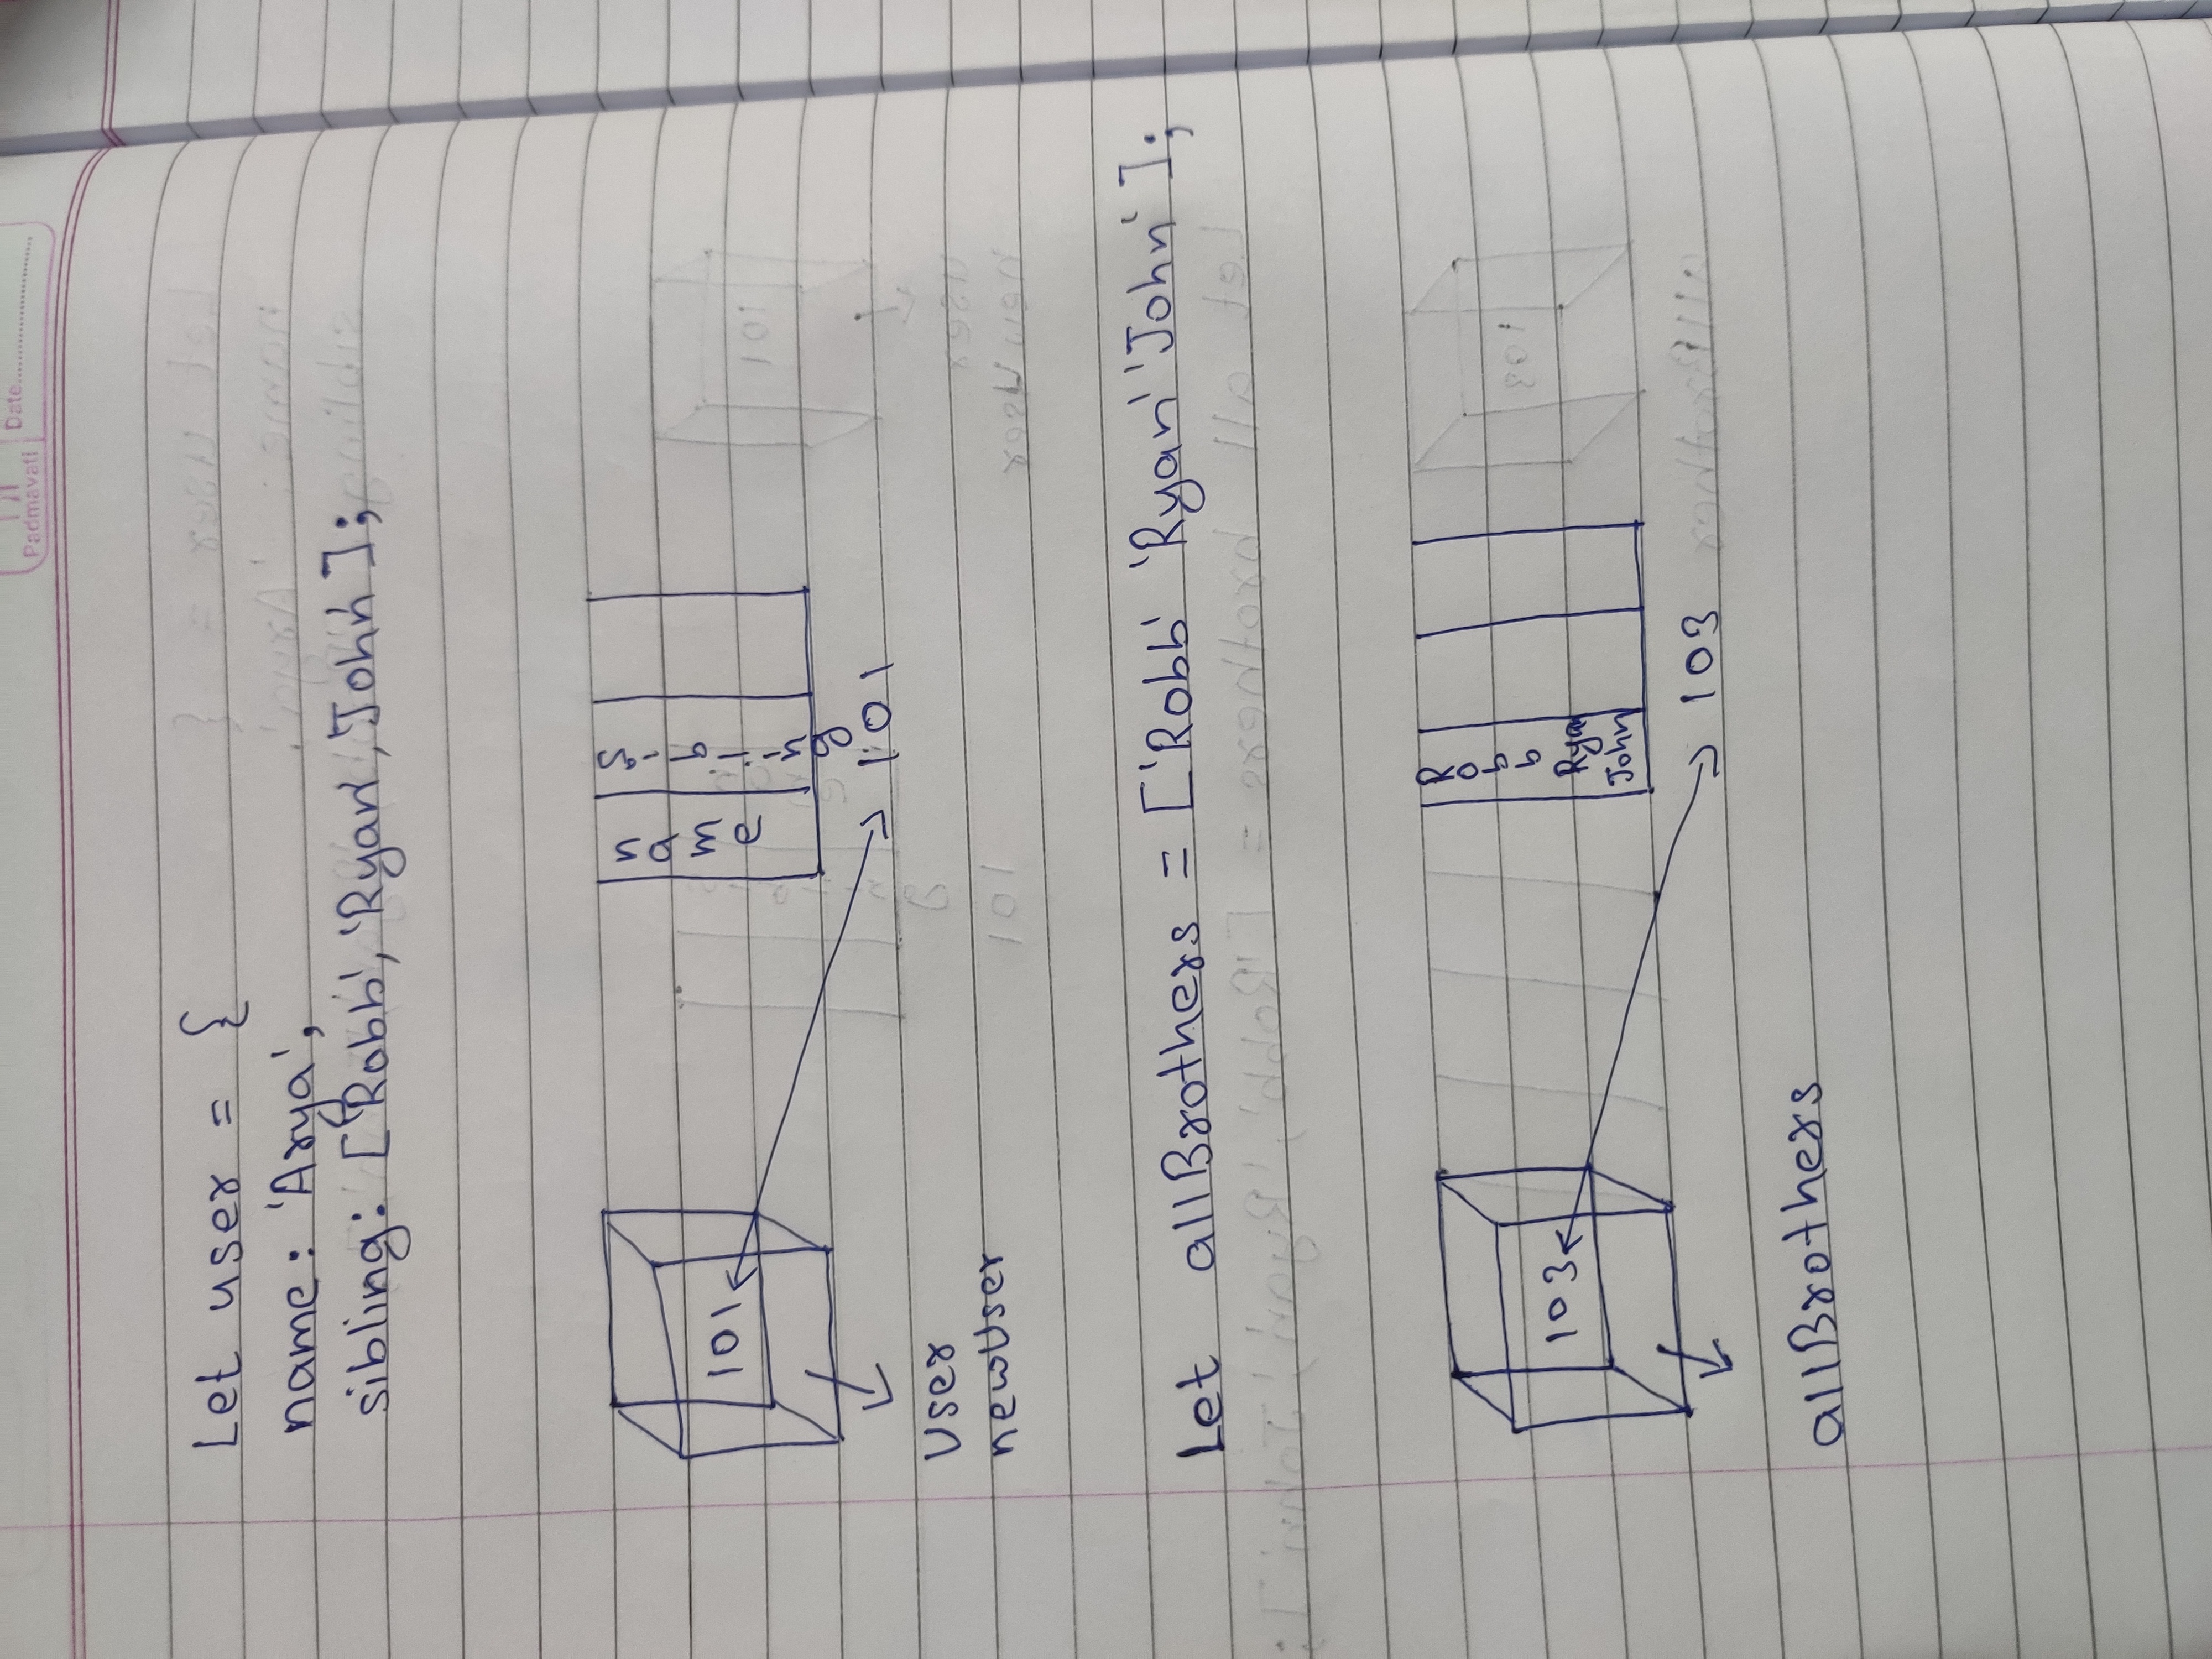 Padmavati
Date
Let user = {
name: 'Arya',
sibling: ['Robb', 'Ryan', 'John'];
name
sibling
101
101
User
newUser
Let allBrothers = ['Robb' 'Ryan' 'John'];
Robb
Ryan
John
103
103
allBrothers